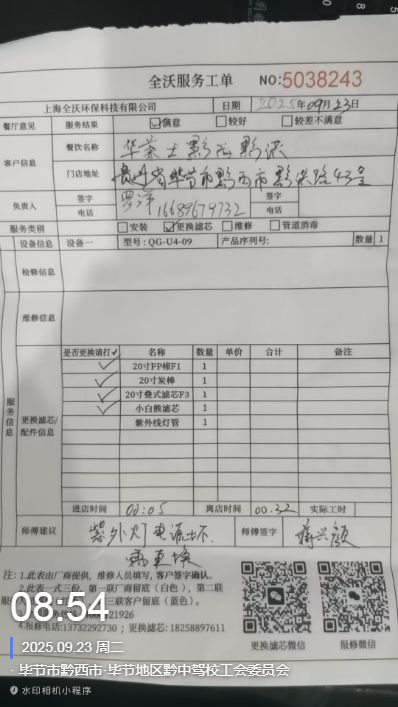 全沃服务工单 NO:5038243
上海全沃环保科技有限公司 日期 2025年09月23日
餐厅意见 服务结果 ☑满意 □较好 □较差不满意
客户信息 餐饮名称 华莱士黔西黔依
门店地址 贵州省毕节市黔西市黔依路43号
负责人 签字 罗洋 签字
电话 16689679732 电话
服务类别 □安装 ☑更换滤芯 □维修 □管道消毒
设备信息 设备一 型号:QG-U4-09 产品序列号: 数量 1
检修信息
维修信息
服务信息
更换滤芯/配件信息
是否更换请打✓ 名称 数量 单价 合计 备注
✓ 20寸PP棉F1 1
✓ 20寸炭棒 1
✓ 20寸叠式滤芯F3 1
✓ 小白熊滤芯 1
紫外线灯管 1
进店时间 00:05 离店时间 00.32 实际工时
师傅建议 紫外灯电源坏 师傅签字
需更换
注:1.此表由厂商提供,维修人员填写,客户签字确认。
2.此表一式三份,第一联厂商留底(白色),第二联
三联客户留底(蓝色)。
21926
4.报修电话:13732292730;更换滤芯:18258897611
更换滤芯微信 报修微信
08:54
2025.09.23 周二
·毕节市黔西市·毕节地区黔中驾校工会委员会
水印相机小程序